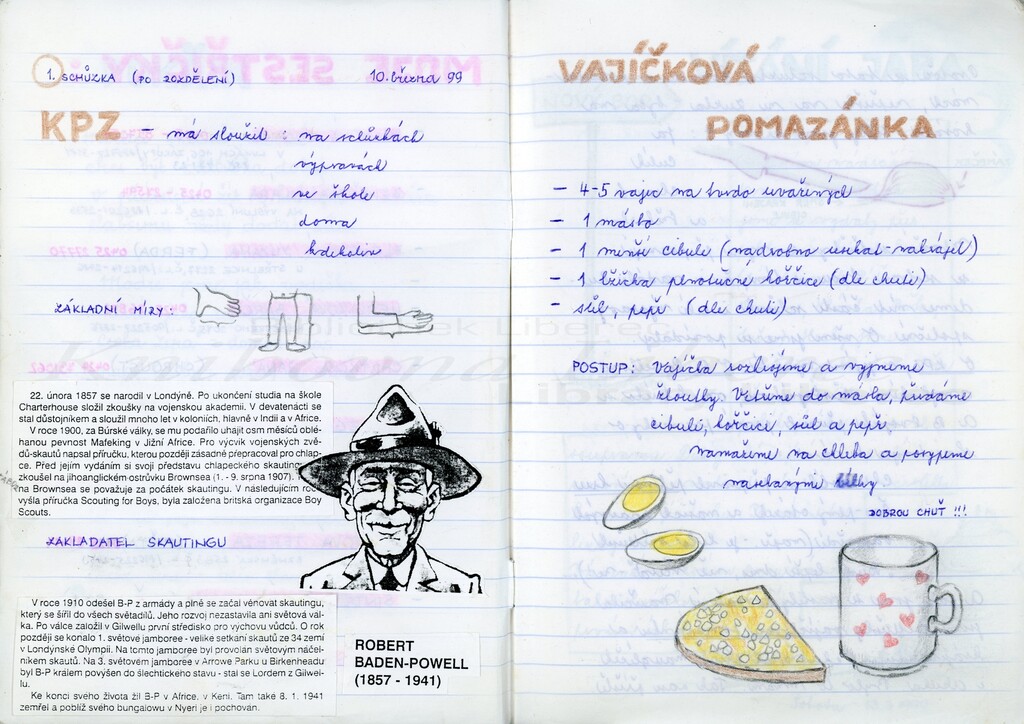 1. SCHŮZKA (PO ROZDĚLENÍ) 10. března 99
KPZ - má sloužit : na schůzkách
výpravách
ve škole
doma
kdekoliv
ZÁKLADNÍ MÍRY :
22. února 1857 se narodil v Londýně. Po ukončení studia na škole
Charterhouse složil zkoušky na vojenskou akademii. V devatenácti se
stal důstojníkem a sloužil mnoho let v koloniích, hlavně v Indii a v Africe.
V roce 1900, za Búrské války, se mu podařilo uhájit osm měsíců oblé-
hanou pevnost Mafeking v Jižní Africe. Pro výcvik vojenských zvě-
dů-skautů napsal příručku, kterou později zásadně přepracoval pro chlap-
ce. Před jejím vydáním si svoji představu chlapeckého
zkoušel na jihoanglickém ostrůvku Brownsea (1. - 9. srpna 1907).
na Brownsea se považuje za počátek skautingu. V následujícím
vyšla příručka Scouting for Boys, byla založena britská organizace Boy
Scouts.
ZAKLADATEL SKAUTINGU
V roce 1910 odešel B-P z armády a plně se začal věnovat skautingu,
který se šířil do všech světadílů. Jeho rozvoj nezastavila ani světová vál-
ka. Po válce založil v Gilwellu první středisko pro výchovu vůdců. O rok
později se konalo 1. světové jamboree - veliké setkání skautů ze 34 zemí
v Londýnské Olympii. Na tomto jamboree byl provolán světovým náčel-
níkem skautů. Na 3. světovém jamboree v Arrowe Parku u Birkenheadu
byl B-P králem povýšen do šlechtického stavu - stal se Lordem z Gilwel-
lu.
Ke konci svého života žil B-P v Africe, v Keni. Tam také 8. 1. 1941
zemřel a poblíž svého bungalowu v Nyeri je i pochován.
ROBERT
BADEN-POWELL
(1857 - 1941)
VAJÍČKOVÁ
POMAZÁNKA
- 4-5 vajec na tvrdo uvařených
- 1 máslo
- 1 menší cibule (nadrobno usekat-nakrájet)
- 1 lžička plnotučné hořčice (dle chuti)
- sůl, pepř (dle chuti)
POSTUP: Vajíčka rozkrojíme a vyjmeme
žloutky. Vetřeme do másla, přidáme
cibuli, hořčici, sůl a pepř,
namažeme na chleba a posypeme
nasekanými bílky
DOBROU CHUŤ !!!